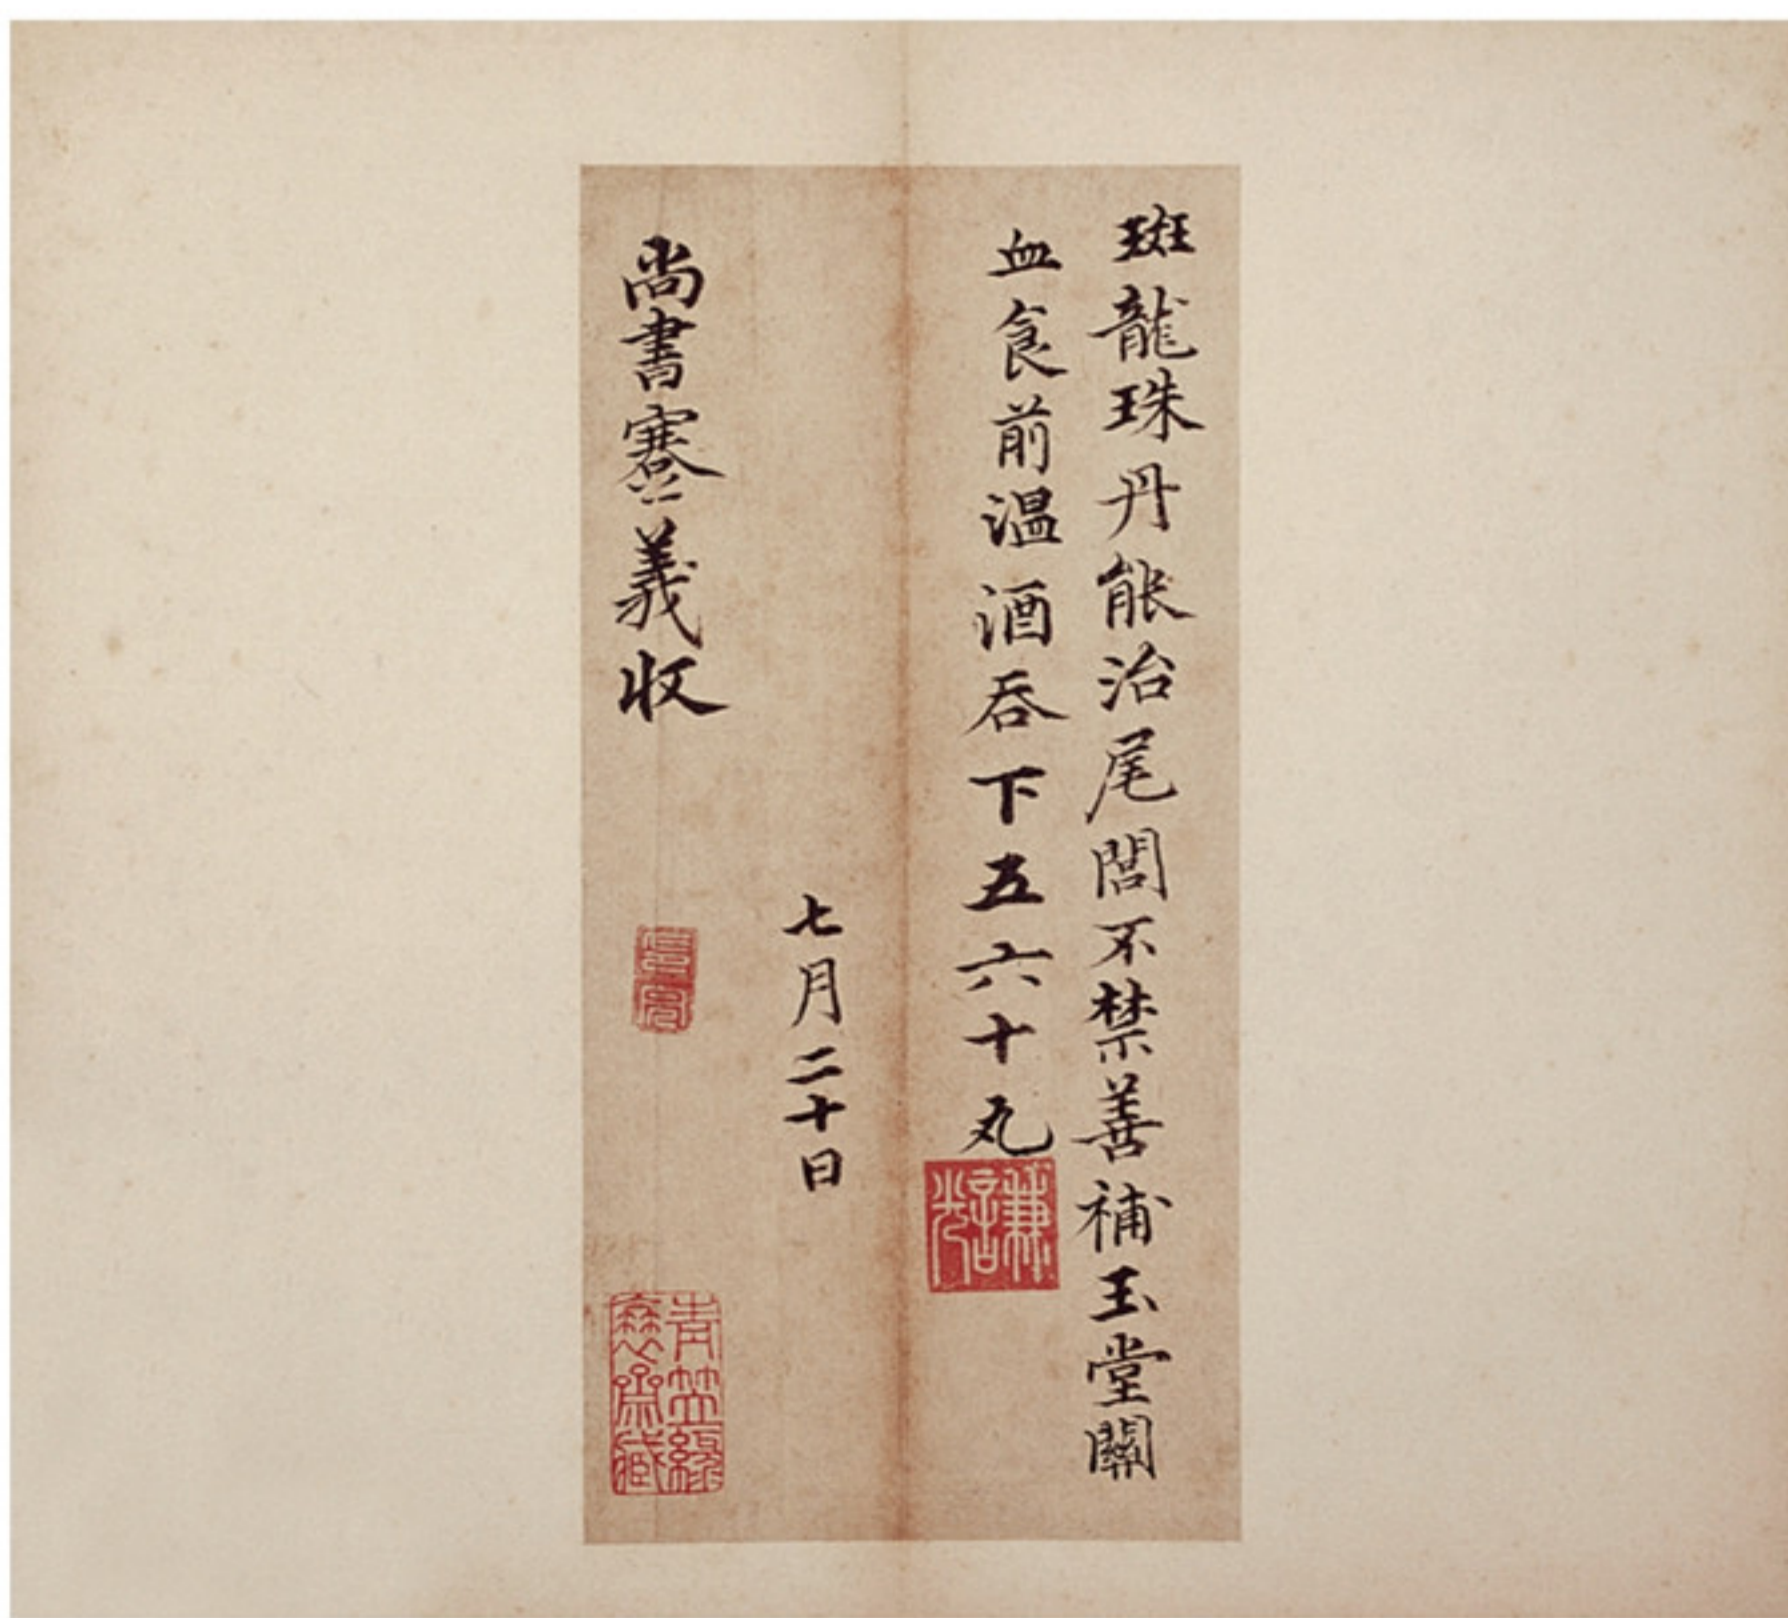 斑龍珠丹能治尾閭不禁善補玉堂關
血食前溫酒吞下五六十丸
七月二十日
尚書蹇義收
謙光